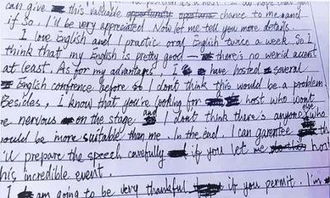 can give this valuable chance to me and
if so, I'll be very appreciated. Now let me tell you more details.
I love English and I practice oral English twice a week. So I
think that my English is pretty good — there's no weird accent
at least. As for my advantages, I have hosted several
English conference before so I don't think this would be a problem.
Besides, I know that you're looking for host who won't
be nervous on the stage and I don't think there's anyone else who
would be more suitable than me. In the end, I can garentee
I'll prepare the speech carefully if you let me host
this incredible event.
I am going to be very thankful if you permit. I'm